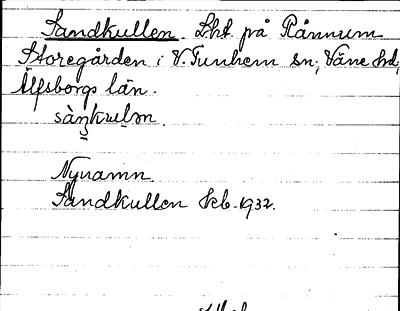 Sandkullen. Lht. på Rånnum
Storegården i V. Tunhem sn, Väne hd,
Älfsborgs län.
sàn̥kuļən.
Nynamn.
Sandkullen kb. 1932.